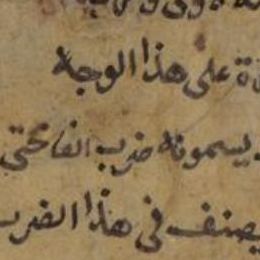 ة على هذا الوجه
يسمونه ضرب الفاختي
يصنف في هذا الضرب